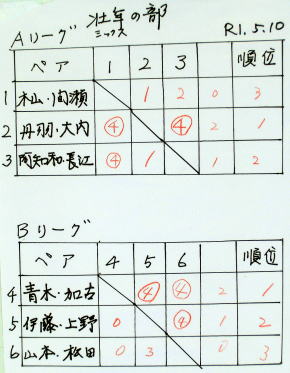 Aリーグ 壮年の部 R1.5.10
ミックス
ペア 1 2 3 順位
1 木山・間瀬 1 2 0 3
2 丹羽・大内 ④ ④ 2 1
3 岡知和・長江 ④ 1 1 2
Bリーグ
ペア 4 5 6 順位
4 青木・加古 ④ ④ 2 1
5 伊藤・上野 0 ④ 1 2
6 山本・松田 0 3 0 3